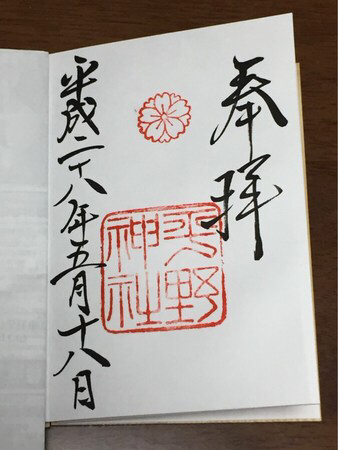 奉拝
平野
神社
平成二十八年五月十八日